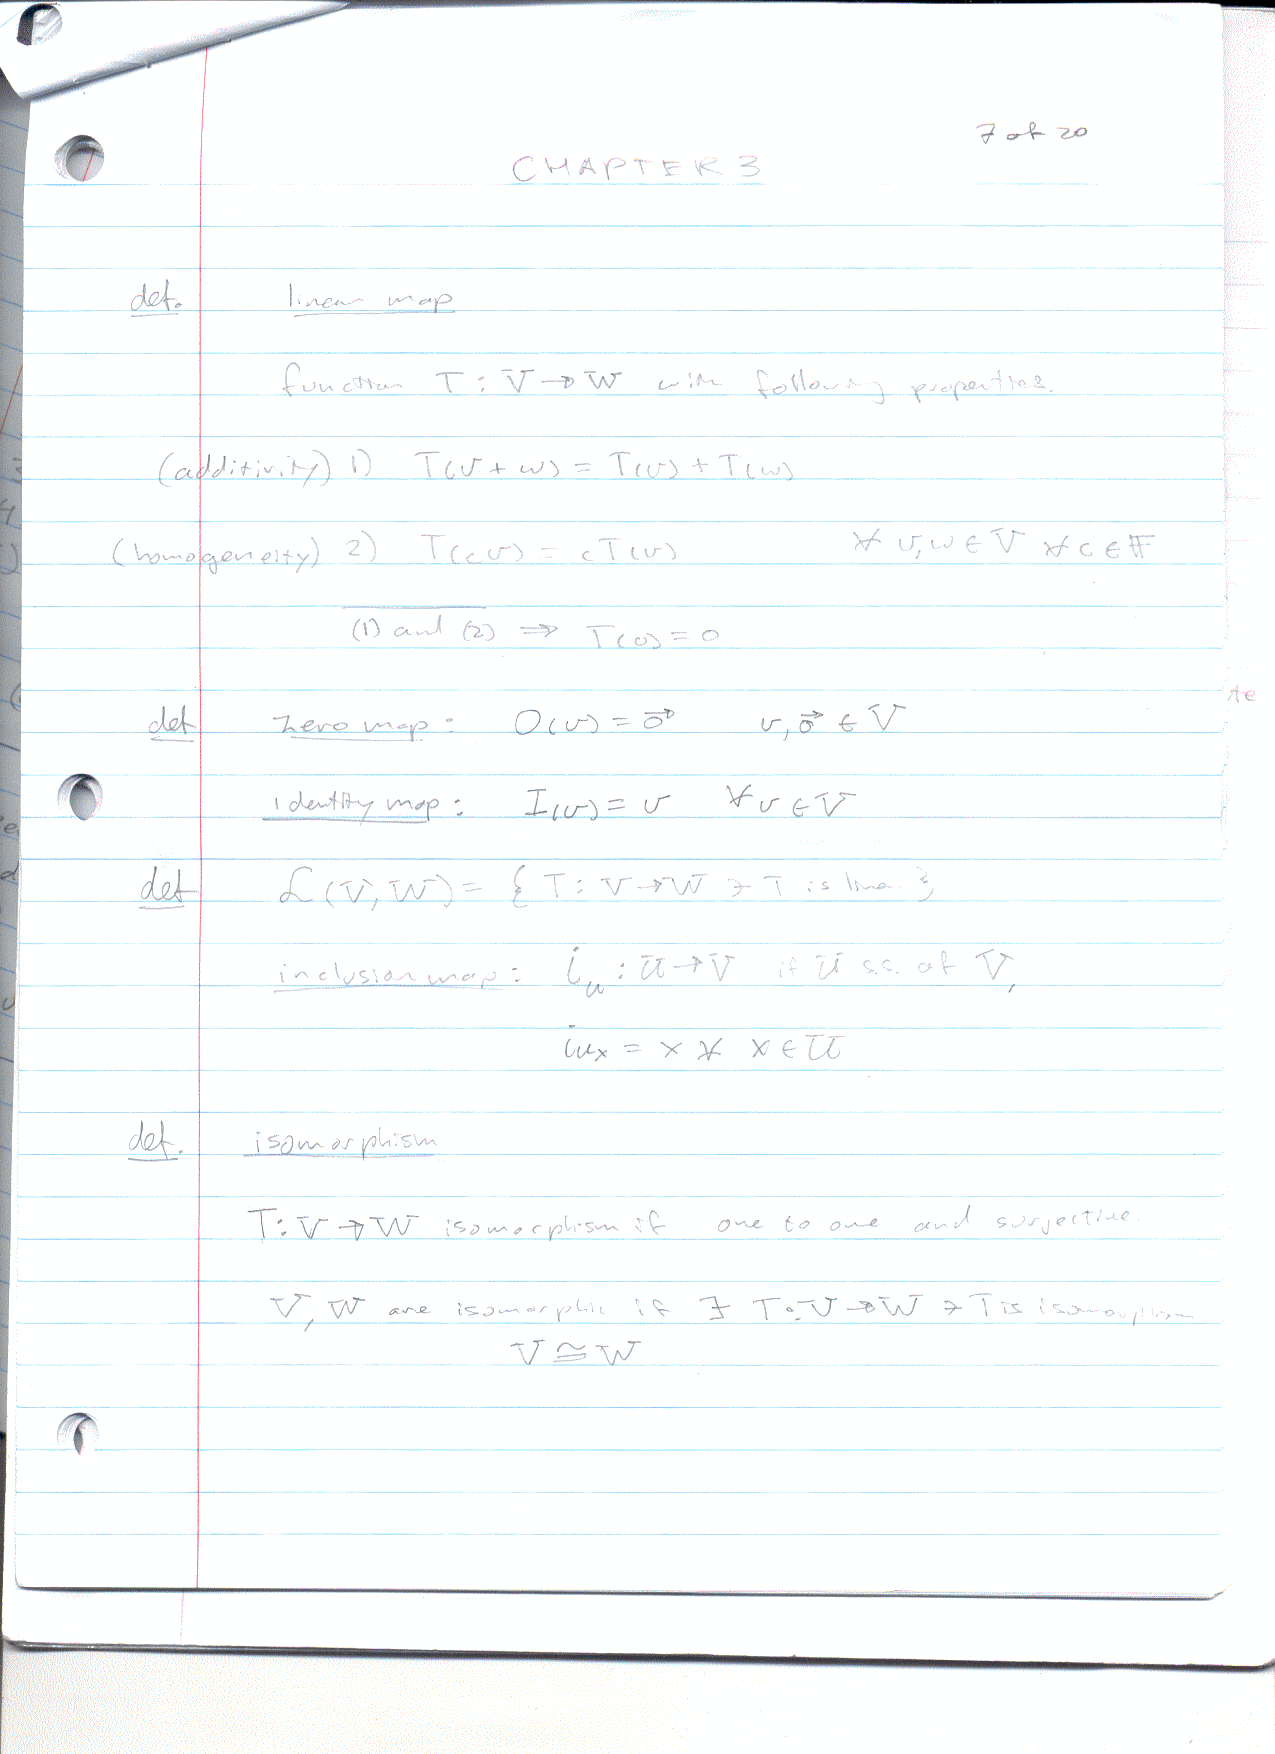 7 of 20
CHAPTER 3
def. linear map
function T : V → W with following properties.
(additivity) 1) T(v + w) = T(v) + T(w)
(homogeneity) 2) T(cv) = cT(v) ∀ v, w ∈ V ∀ c ∈ 𝔽
(1) and (2) ⇒ T(0) = 0
def zero map : O(v) = 0⃗ v, 0⃗ ∈ V
identity map : I(v) = v ∀ v ∈ V
def ℒ(V, W) = { T : V → W ∋ T is linear }
inclusion map : i_u : U → V if U s.s. of V,
i_u x = x ∀ x ∈ U
def. isomorphism
T : V → W isomorphism if one to one and surjective.
V, W are isomorphic if ∃ T : V → W ∋ T is isomorphism
V ≅ W